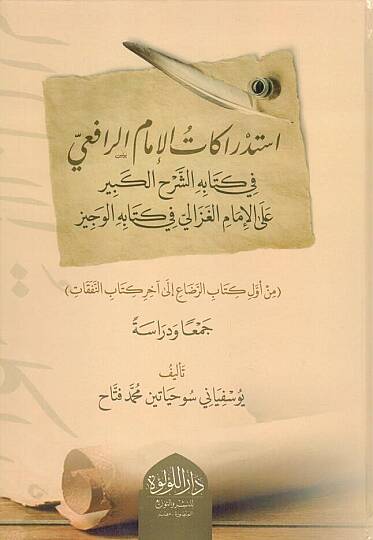 استدراكات الإمام الرافعي
في كتابه الشرح الكبير
على الإمام الغزالي في كتابه الوجيز
(من أول كتاب الرضاع إلى آخر كتاب النفقات)
جمعًا ودراسةً
تأليف
يوسفياني سوحياتين محمد فتاح
دار اللؤلؤة
للنشر والتوزيع
المنصورة - مصر